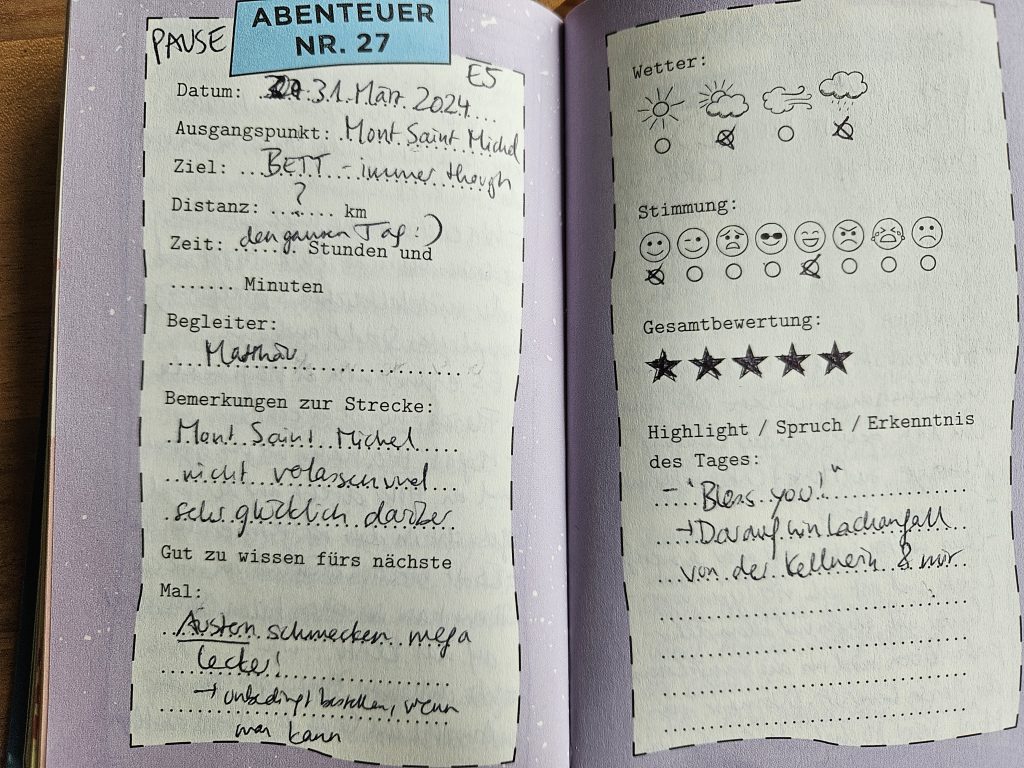 PAUSE
ABENTEUER
NR. 27
E5
Datum: 31. März 2024
Ausgangspunkt: Mont Saint Michel
Ziel: BETT - immer though
Distanz: ? km
Zeit: den ganzen Tag :) Stunden und
....... Minuten
Begleiter:
Bemerkungen zur Strecke:
Mont Saint Michel
nicht verlassen und
sehr glücklich darüber
Gut zu wissen fürs nächste
Mal:
Austern schmecken mega
lecker!
→ unbedingt bestellen, wenn
man kann
Wetter:
Stimmung:
Gesamtbewertung:
Highlight / Spruch / Erkenntnis
des Tages:
- "Bless you!"
→ Daraufhin Lachanfall
von der Kellnerin & mir